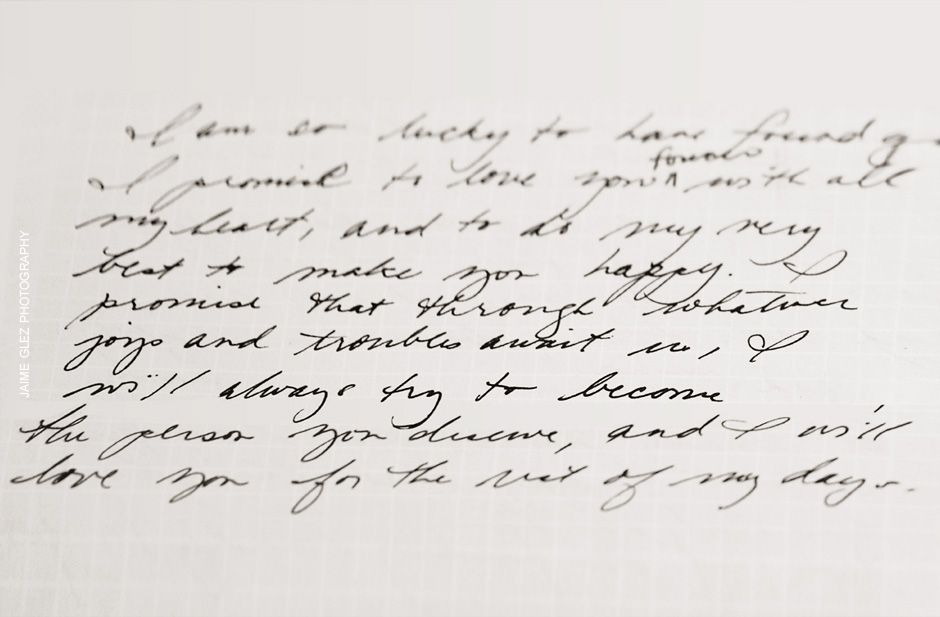 I am so lucky to have found
forever
I promise to love you ^ with all
my heart, and to do my very
best to make you happy. I
promise that through whatever
joys and troubles await us, I
will always try to become
the person you deserve, and I will
love you for the rest of my days.
JAIME GLEZ PHOTOGRAPHY